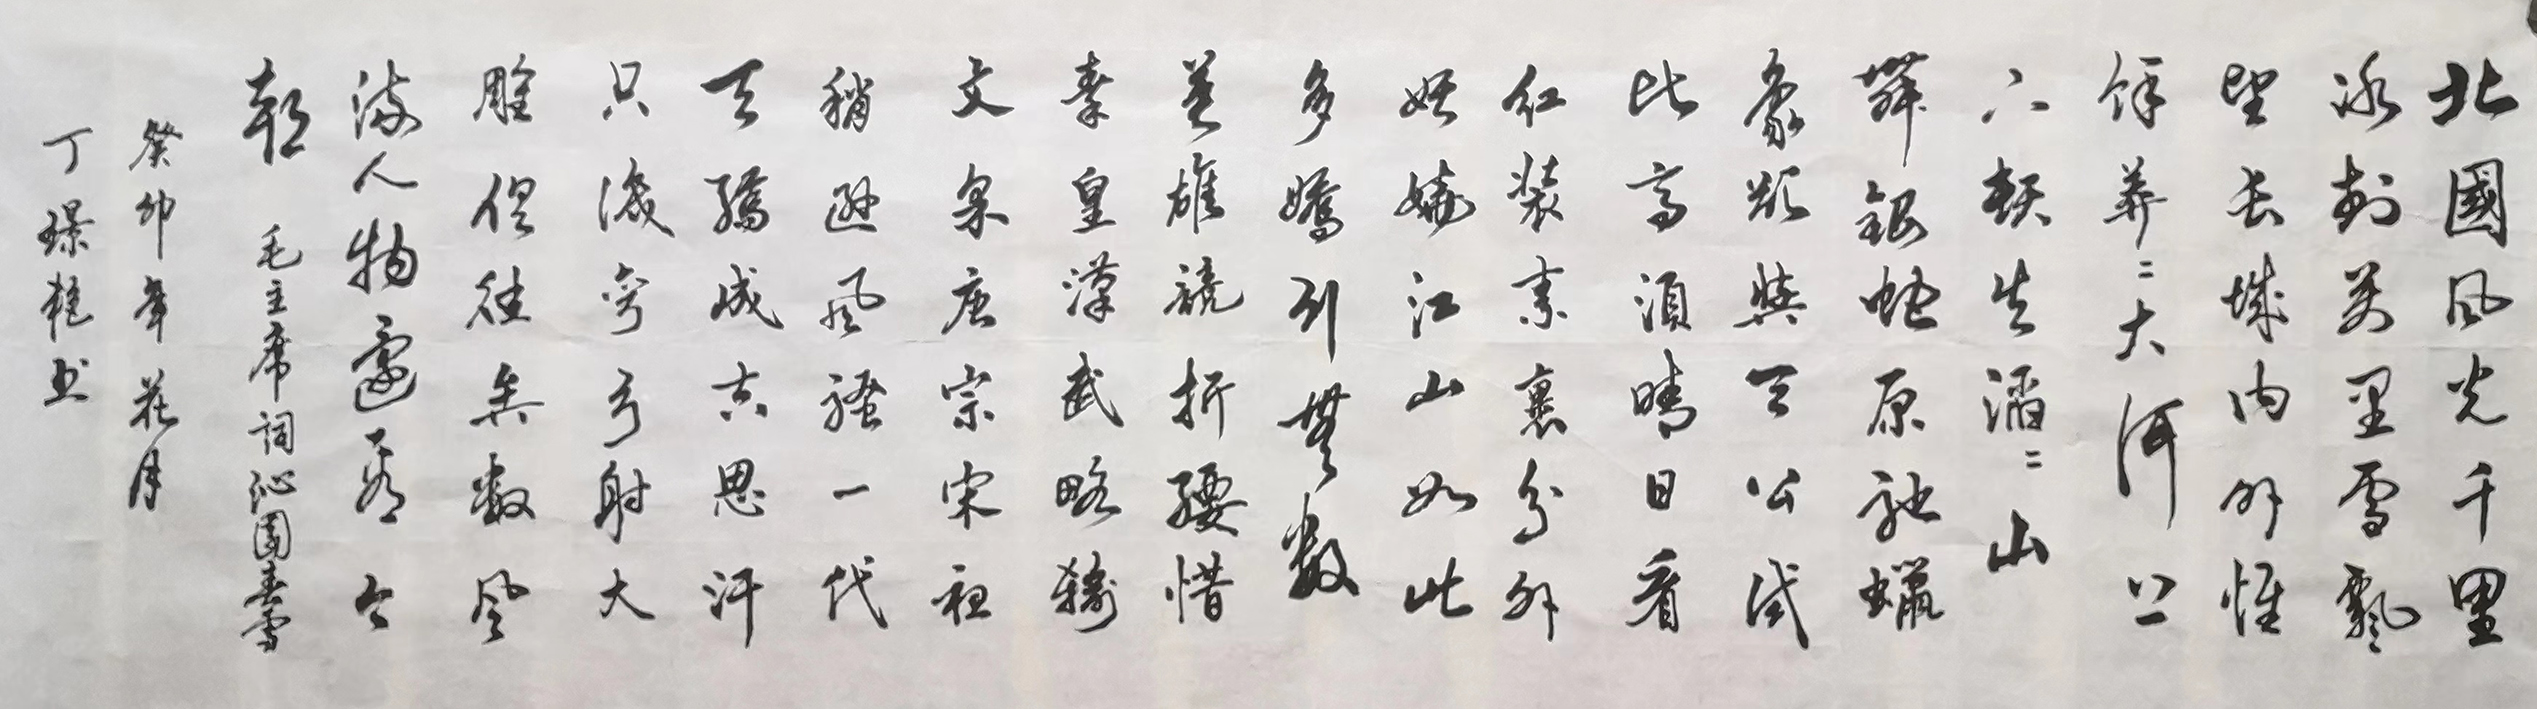 北國风光千里
冰封萬里雪飄
望长城内外惟
馀莽〻大河上
下頓失滔〻山
舞銀蛇原驰蠟
象欲與天公试
比高須晴日看
红装素裹分外
妖娆江山如此
多嬌引無数
英雄競折腰惜
秦皇漢武略输
文采唐宗宋祖
稍逊风骚一代
天骄成吉思汗
只識弯弓射大
雕俱往矣数风
流人物還看今
朝 毛主席词沁园春雪
癸卯年花月
丁璟艳书